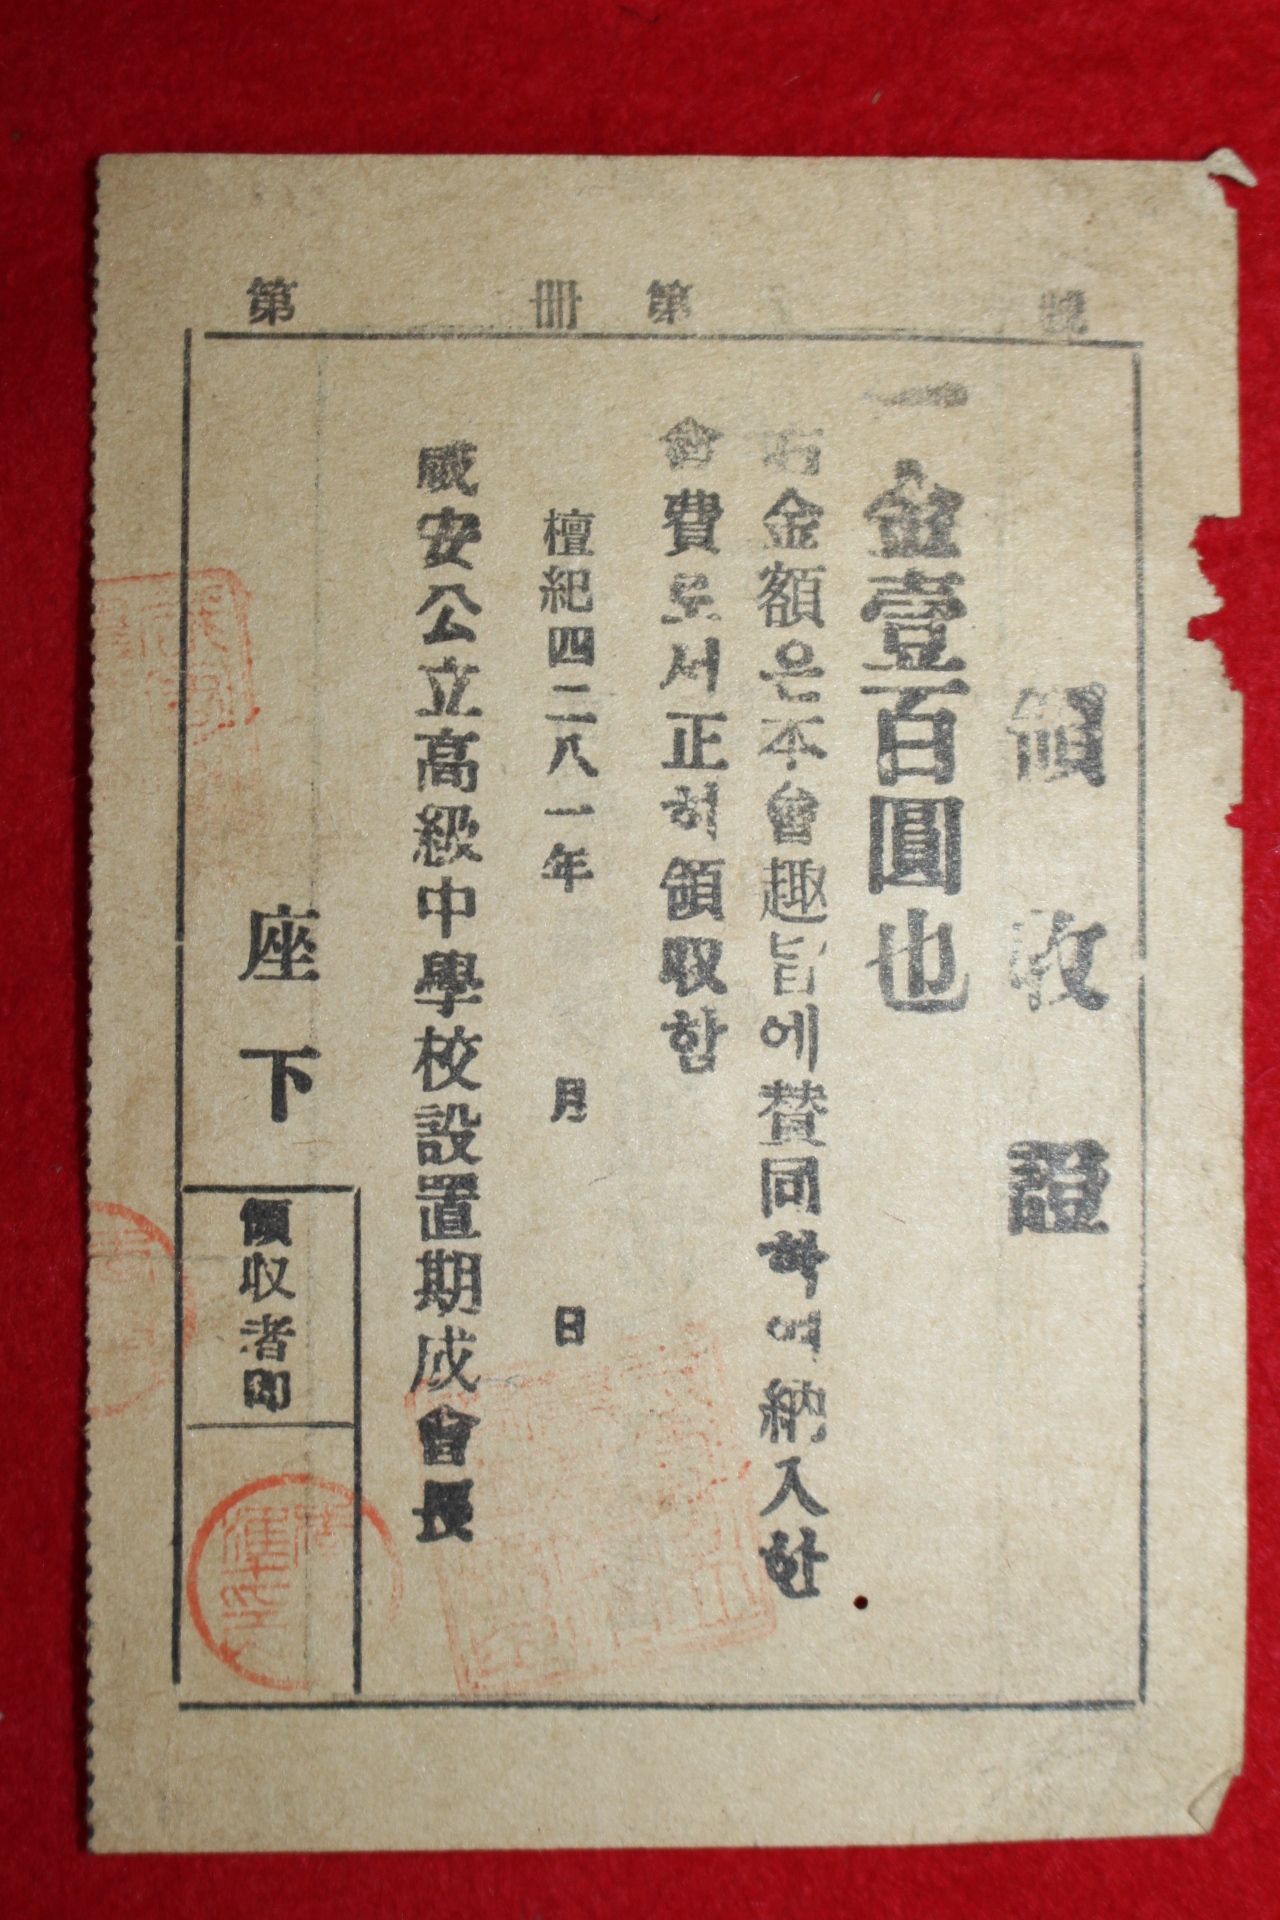 第 冊 第 號
領收證
一金壹百圓也
右金額은本會趣旨에賛同하여納入한
會費로서正히領収함
檀紀四二八一年 月 日
咸安公立高級中學校設置期成會長
座下
領収者印